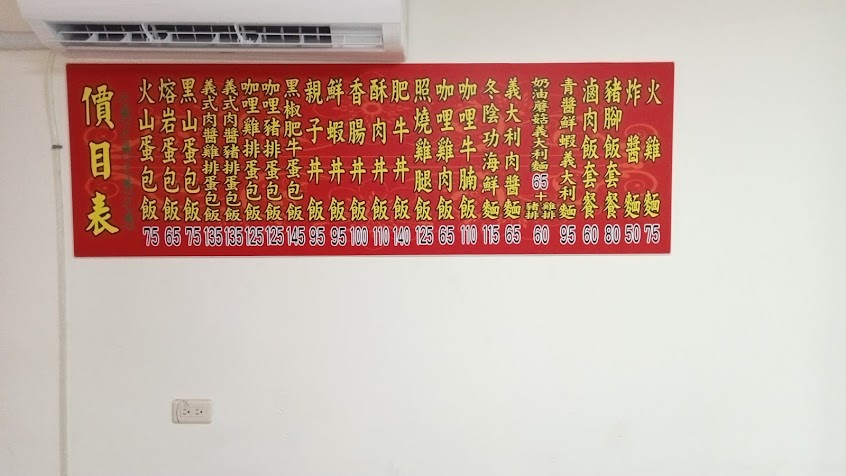 價目表
火山蛋包飯 75
熔岩蛋包飯 65
黑山蛋包飯 75
義式肉醬雞排蛋包飯 135
義式肉醬豬排蛋包飯 135
咖哩雞排蛋包飯 125
咖哩豬排蛋包飯 125
黑椒肥牛蛋包飯 145
親子丼飯 95
鮮蝦丼飯 95
香腸丼飯 100
酥肉丼飯 110
肥牛丼飯 140
照燒雞腿飯 125
咖哩雞肉飯 65
咖哩牛腩飯 110
冬陰功海鮮麵 115
義大利肉醬麵 65
奶油蘑菇義大利麵 65+雞排豬排 60
青醬鮮蝦義大利麵 95
滷肉飯套餐 60
豬腳飯套餐 80
炸醬麵 50
火雞麵 75